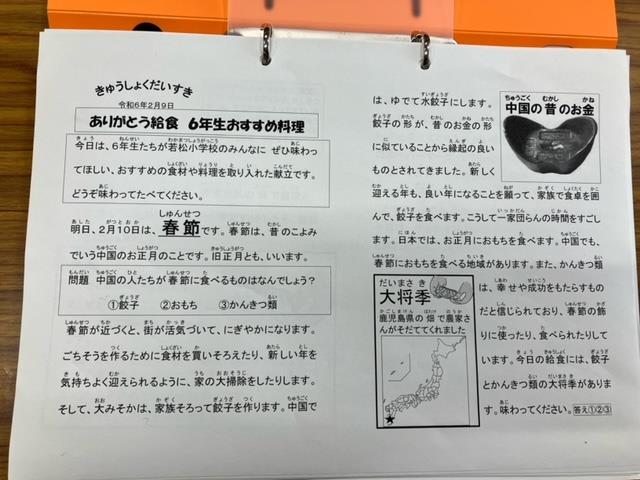 きゅうしょくだいすき
令和6年2月9日
ありがとう給食 6年生おすすめ料理
今日は、6年生たちが若松小学校のみんなに ぜひ味わっ
てほしい、おすすめの食材や料理を取り入れた献立です。
どうぞ味わってたべてください。
明日、2月10日は、春節です。春節は、昔のこよみ
でいう中国のお正月のことです。旧正月とも、いいます。
問題 中国の人たちが 春節に食べるものはなんでしょう？
①餃子 ②おもち ③かんきつ類
春節が近づくと、街が活気づいて、にぎやかになります。
ごちそうを作るために食材を買いそろえたり、新しい年を
気持ちよく迎えられるように、家の大掃除をしたりします。
そして、大みそかは、家族そろって餃子を作ります。中国で
は、ゆでて水餃子にします。
餃子の形が、昔のお金の形
に似ていることから縁起の良い
ものとされてきました。新しく
中国の昔のお金
迎える年も、良い年になることを願って、家族で食卓を囲
んで、餃子を食べます。こうして一家団らんの時間をすごし
ます。日本では、お正月におもちを食べます。中国でも、
春節におもちを食べる地域があります。また、かんきつ類
は、幸せや成功をもたらすもの
だと信じられており、春節の飾
りに使ったり、食べられたりして
います。今日の給食には、餃子
とかんきつ類の大将季がありま
す。味わってください。答え①②③
大将季
鹿児島県の畑で農家さ
んがそだててくれました